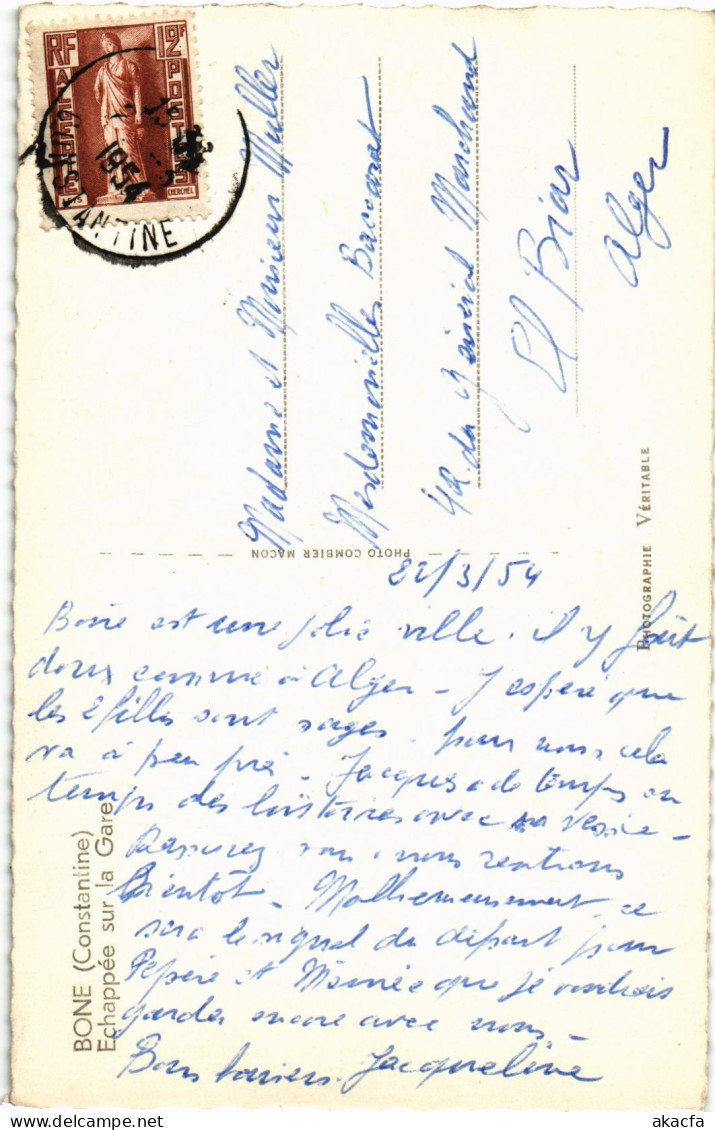 RF
12F
POSTES
ALGERIE
CHERCHEL
1954
CONSTANTINE
Madame et Monsieur Muller
Mesdemoiselles Baccarat
4 R. du Général Marchand
El Biar
Alger
PHOTO COMBIER MACON
PHOTOGRAPHIE VÉRITABLE
22/3/54
Bone est une jolie ville. il y fait
doux comme à Alger - J'espère que
les 2 filles sont sages. pour nous cela
va à peu près - Jacques a de temps en
temps des histoires avec sa vessie -
Rassurez vous, nous rentrons
bientôt - Malheureusement ce
sera le signal du départ pour
Pépère et Mémée que je voudrais
garder encore avec nous -
Bons baisers. Jacqueline
BONE (Constantine)
Echappée sur la Gare
www.akacfa.com
akacfa